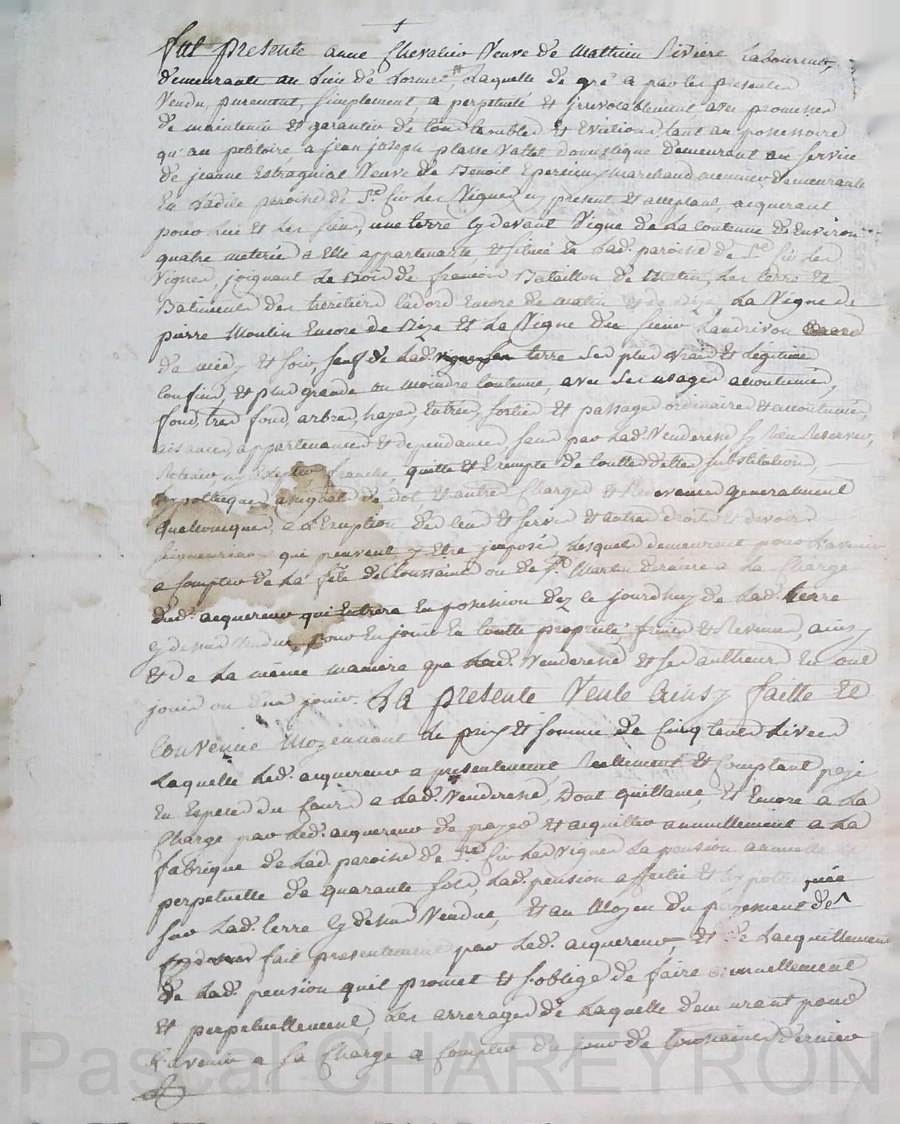 Fut presente anne Chevalier Veuve de Mathieu Riviere laboureur,
demeurante au lieu de laquelle de gré a par les presentes
Vendu purement, simplement, a perpetuité et irrevocablement avec promesse
de maintenir et garantir de tous troubles et Evictions tant au possessoire
qu'au petitoire a jean joseph plasse Vallet domestique demeurant au service
de jeanne Estragniat Veuve de Benoit marchand demeurante
En paroisse de Ste foy Les Vignes icy present et acceptant, acquerant
pour lui et les siens, une terre cy devant Vigne de La contenue d'Environ
quatre meterée a Elle appartenante et située En lad. paroisse de Ste foy Les
Vignes, joignant Le Bois de françois Bataillon de Matin, Les terre et
Batiments des heritiers Encore de matin et de Bize, La Vigne de
pierre Moulin Encore de Bize et La Vigne du sieur Landrivon
de midy et soir, sauf de Lad. terre ses plus vrais et Legitimes
confins, et plus grande ou moindre contenue, avec ses usages accoutumés,
fond, tres fond, arbres, hayes, Entrées, sorties et passages ordinaires et accoutumés,
aisances, appartenances et dependances sans par Lad. Venderesse sy Rien Reserver,
Retenir, ny franche, quitte et Exempte de toutes dettes substitutions,
hypotheque, de dot et autres Charges et Redevances generalement
quelconques, a L'Exeption des cens et servis et autres droits et devoirs
seigneuriaux qui peuvent y Etre imposés, Lesquels demeurent pour L'avenir
a compter de La fête de Toussaint ou de St Martin derniere a La Charge
dud. acquereur qui Entrera En possession dez ce jourdhuy de Lad. terre
cy dessus Vendue, pour En jouir En toutte proprieté, fruits et Revenus, ainsy
et de La même maniere que Lad. Venderesse et ses autheurs En ont
jouis ou du jouir. La presente Vente Ainsy faitte Et
Convenüe Moyennant Le prix et somme de Cinq Cents Livres
Laquelle Led. acquereur a presentement Reellement et Comptant payé
En Especes du Cours a Lad. Venderesse, Dont quittance, Et Encore a La
Charge par Led. acquereur de payer et acquitter annuellement a La
fabrique de Lad. paroisse de Ste foy Les Vignes La pension annuelle et
perpetuelle de quarante sols, Lad. pension affectée et hypothequée
sur Lad. terre cy dessus Vendue, Et au Moyen du payement de
fait presentement par Led. acquereur, et de L'acquittement
de Lad. pension qu'il promet et s'oblige de faire annuellement
et perpetuellement, Les arrerages de Laquelle demeurant pour
L'avenir a sa Charge a compter du jour de toussaint dernier
Pascal CHAREYRON